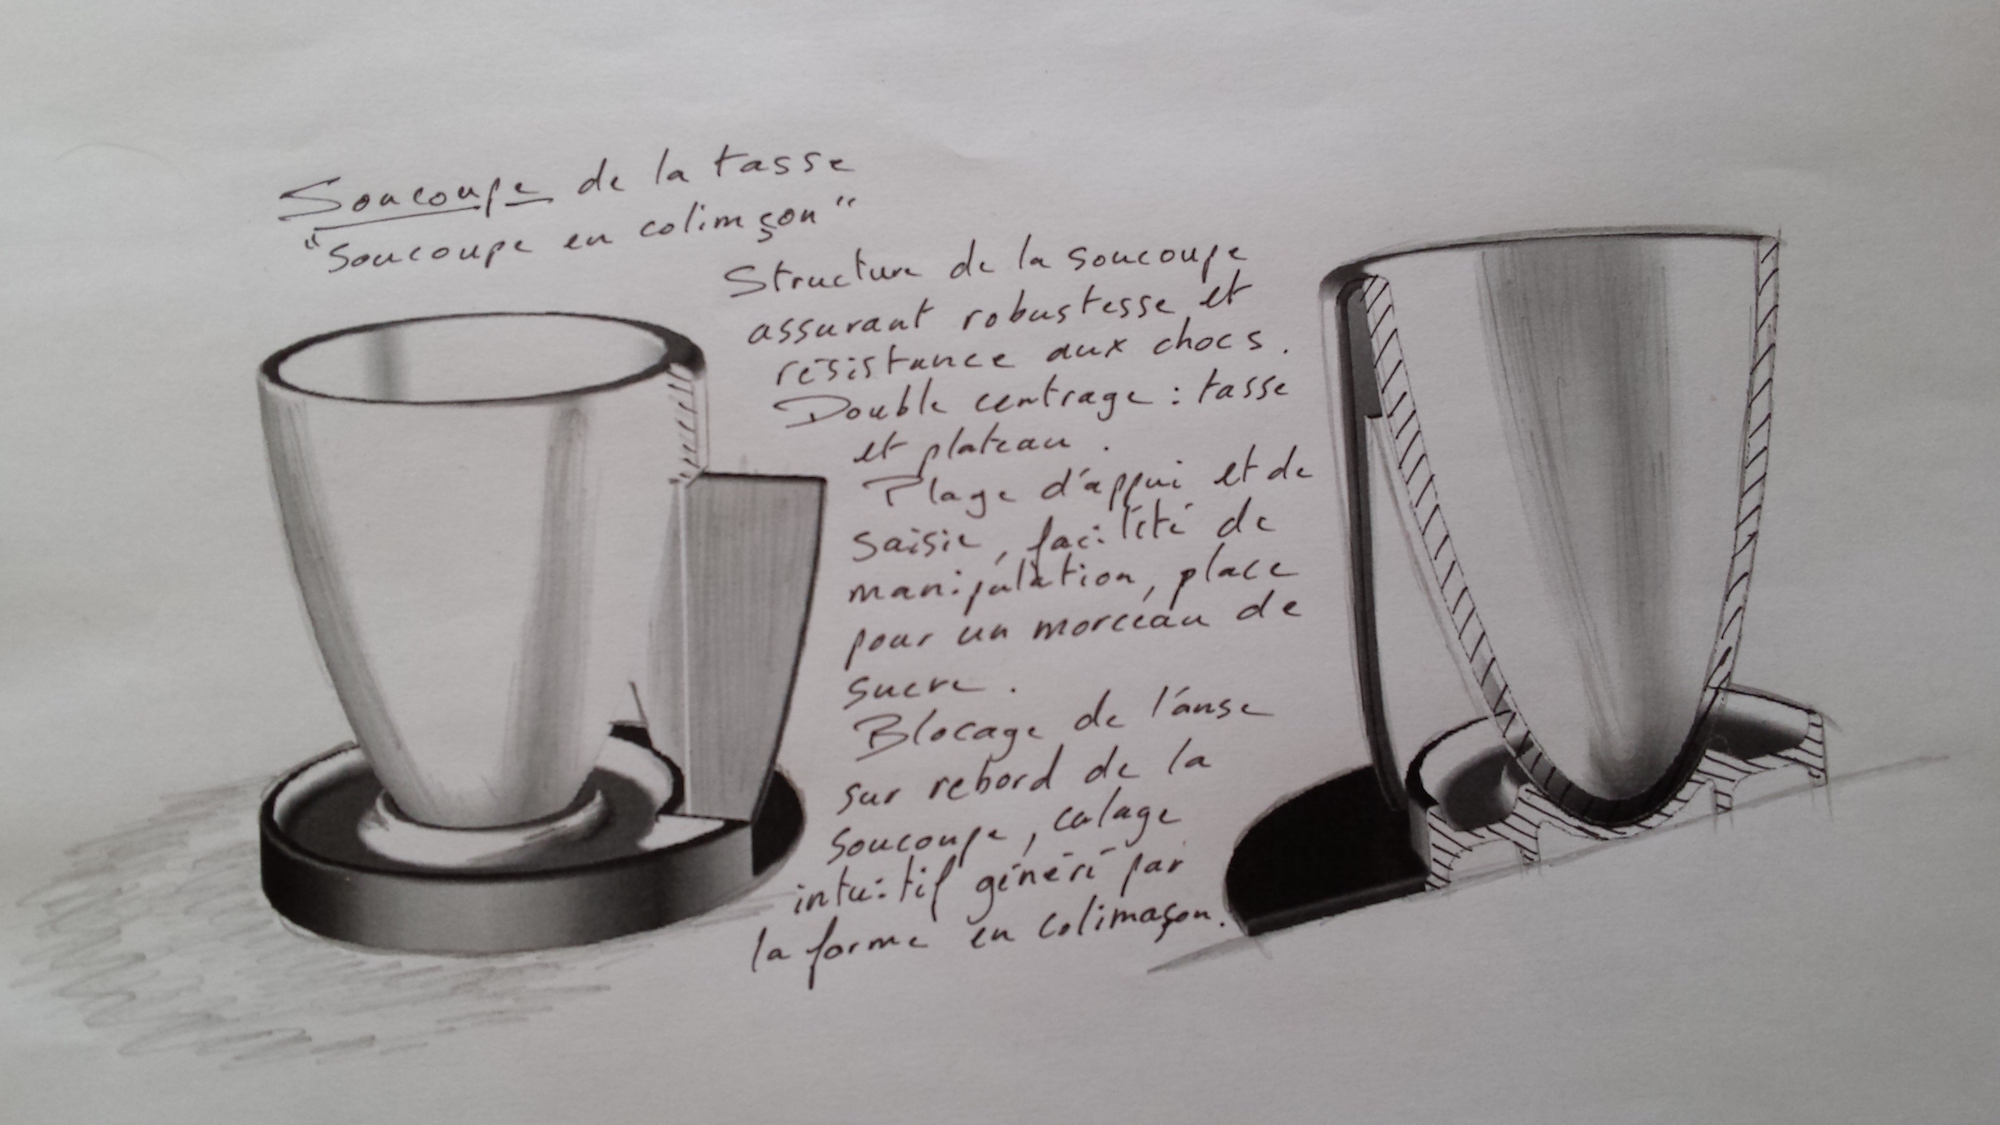 Soucoupe de la tasse
"Soucoupe en colimçon"
Structure de la soucoupe
assurant robustesse et
résistance aux chocs.
Double centrage : tasse
et plateau.
Plage d'appui et de
saisie, facilité de
manipulation, place
pour un morceau de
sucre.
Blocage de l'anse
sur rebord de la
soucoupe, calage
intuitif généré par
la forme en colimaçon.